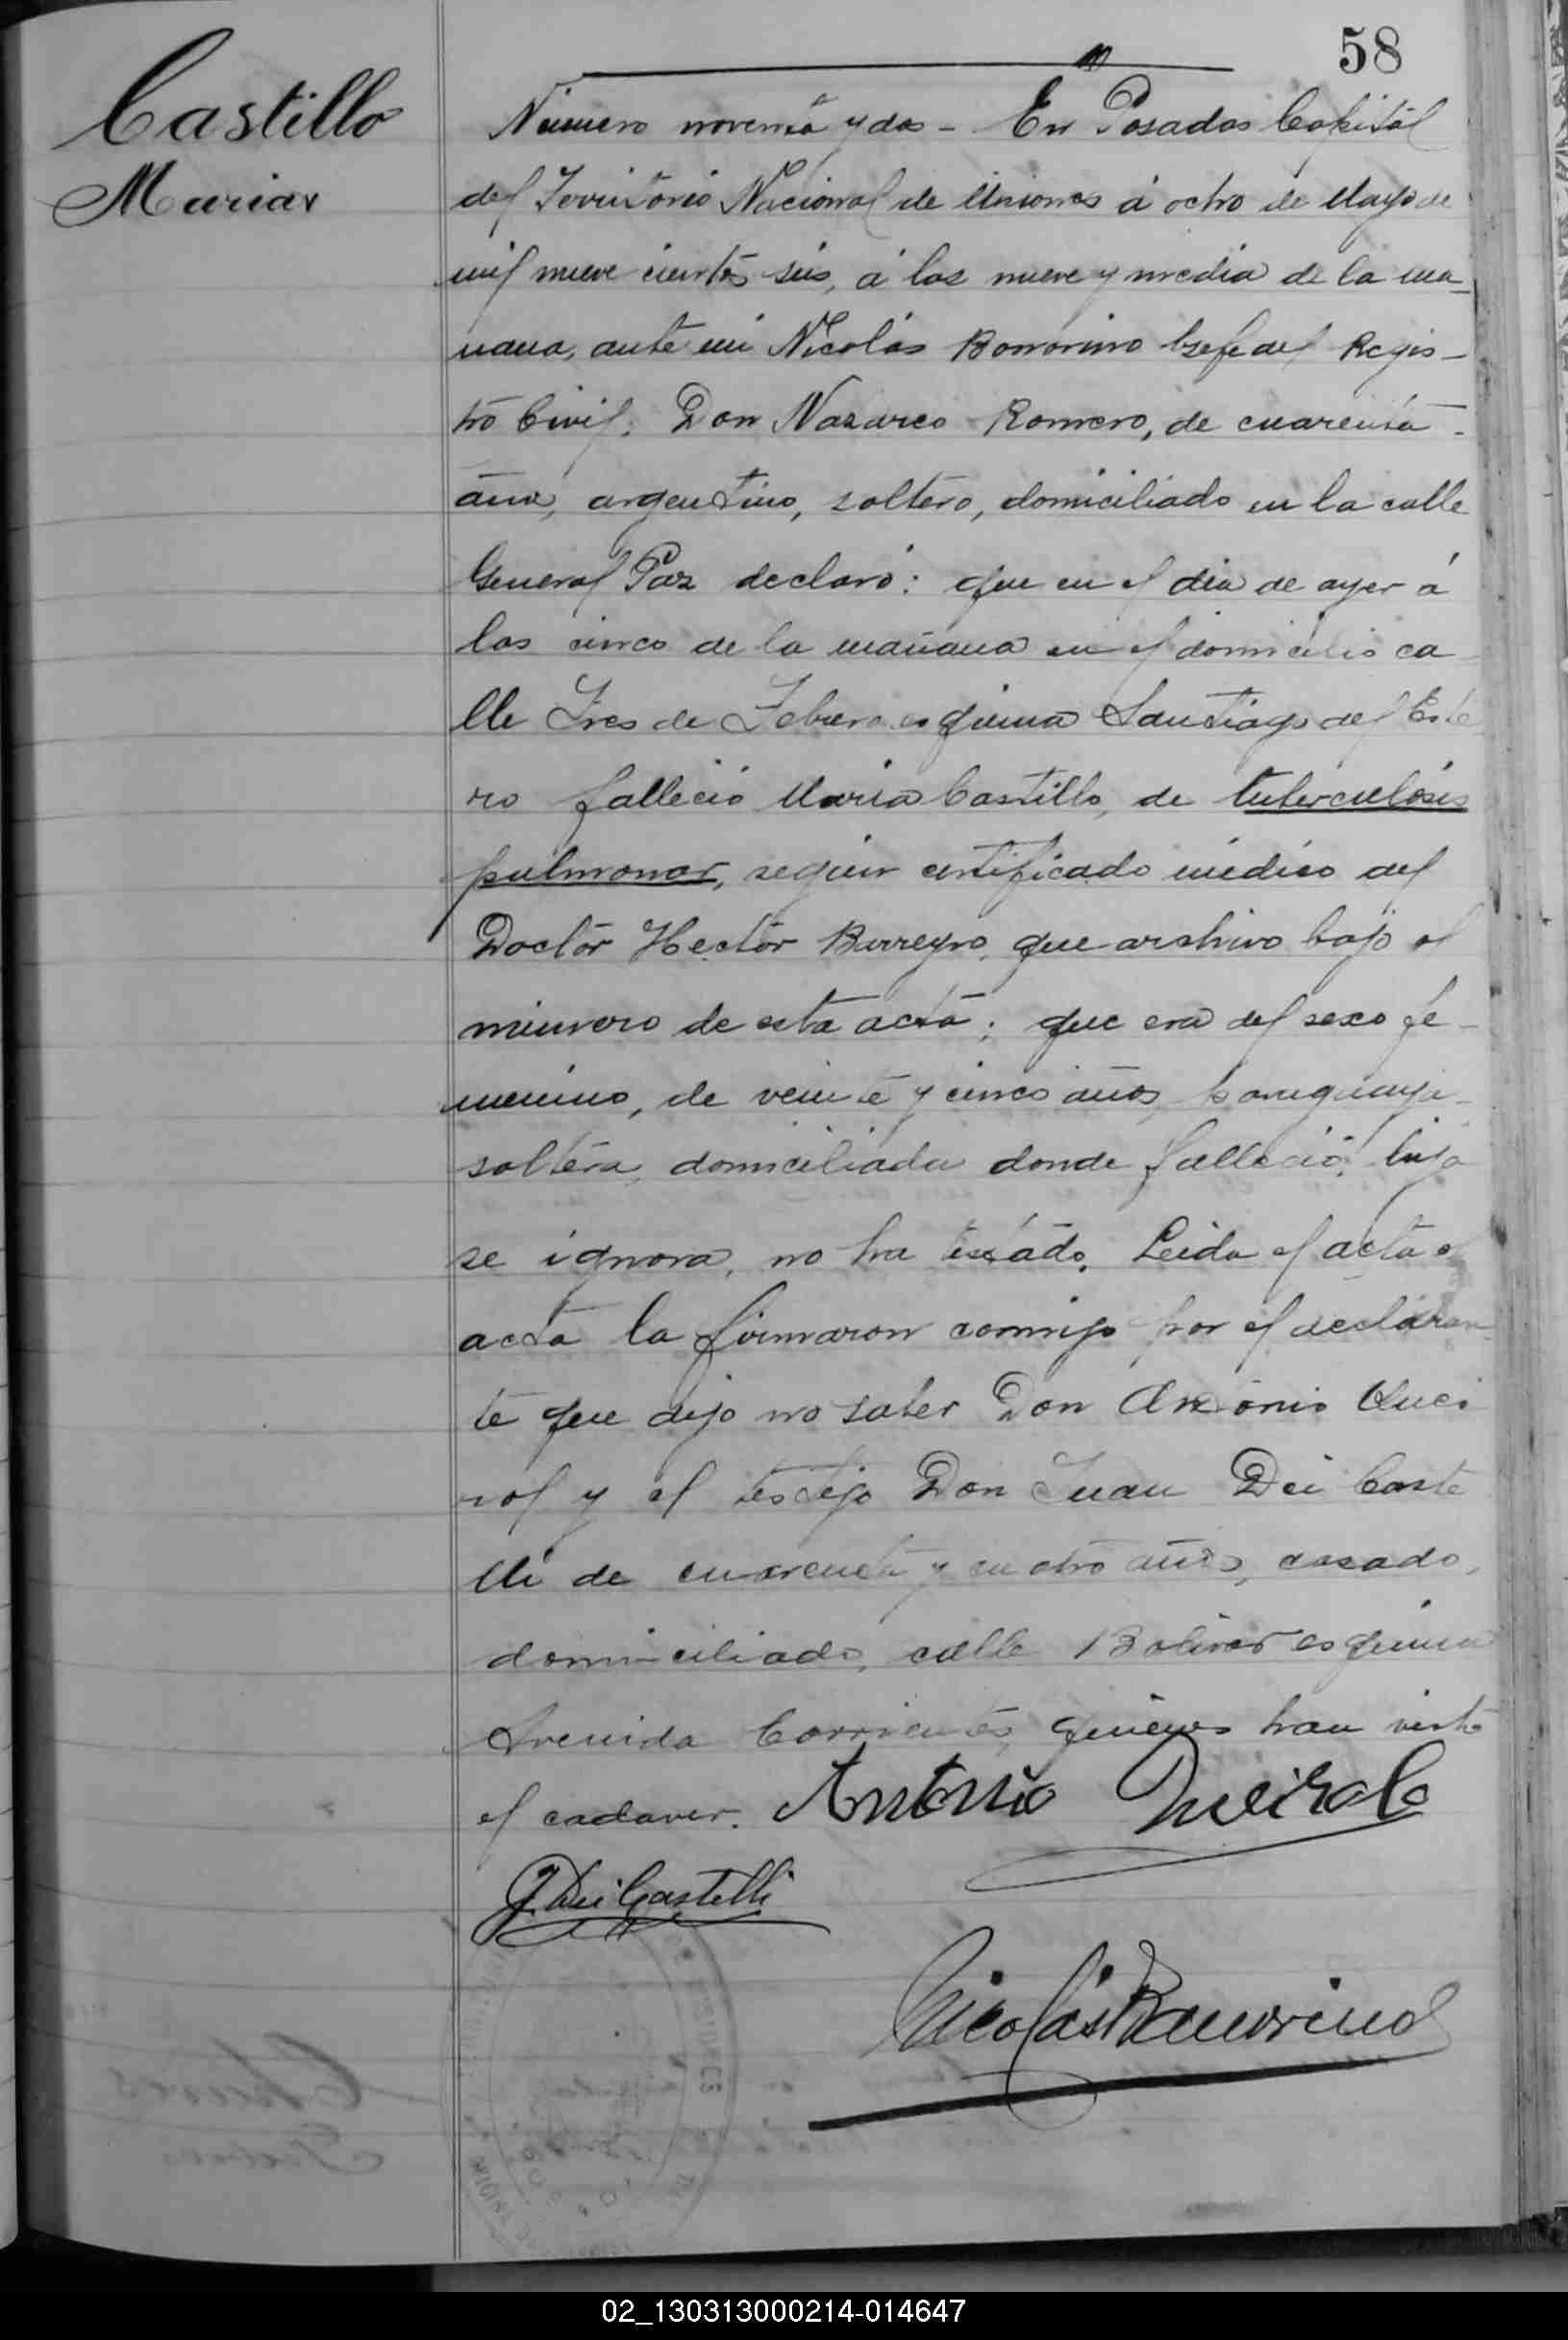 58
Castillo
Maria
Número noventa y dos - En Posadas Capital
del Territorio Nacional de Misiones á ocho de Mayo de
mil nueve cientos seis, á las nueve y media de la ma-
ñana, ante mi Nicolás Bonorino Gefe del Regis-
tro Civil; Don Nazareo Romero, de cuarenta
años, argentino, soltero, domiciliado en la calle
General Paz declaró: que en el dia de ayer á
las cinco de la mañana en el domicilio ca-
lle Tres de Febrero esquina Santiago del Este-
ro falleció Maria Castillo, de tuberculosis
pulmonar, según certificado médico del
Doctor Hector Barreyro, que archivo bajo el
número de esta acta; que era del sexo fe-
menino, de veinte y cinco años, paraguaya
soltera, domiciliada donde falleció, hija
se ignora, no ha testado. Leida el acta el
acta la firmaron conmigo por el declaran-
te que dijo no saber Don Antonio Quei
rol y el testigo Don Juan Dei Caste
lli de cuarenta y cuatro años, casado,
domiciliado, calle Bolivar esquina
Avenida Corrientes, quienes han visto
el cadaver. Antonio Queirolo
J. Dei Castelli
Nicolás Bonorino
02_130313000214-014647